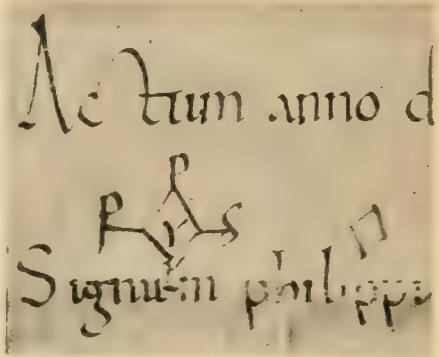 Actum anno d
R P S
Signum philippi